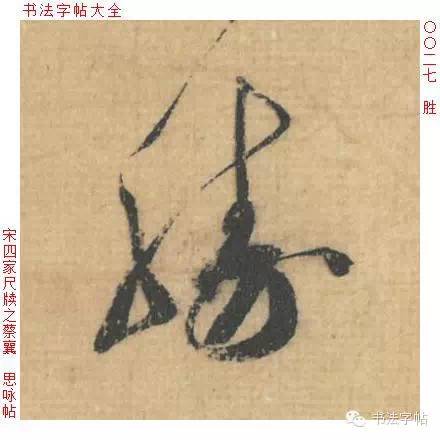 书法字帖大全
〇〇二七 胜
勝
宋四家尺牍之蔡襄 思咏帖
书法字帖